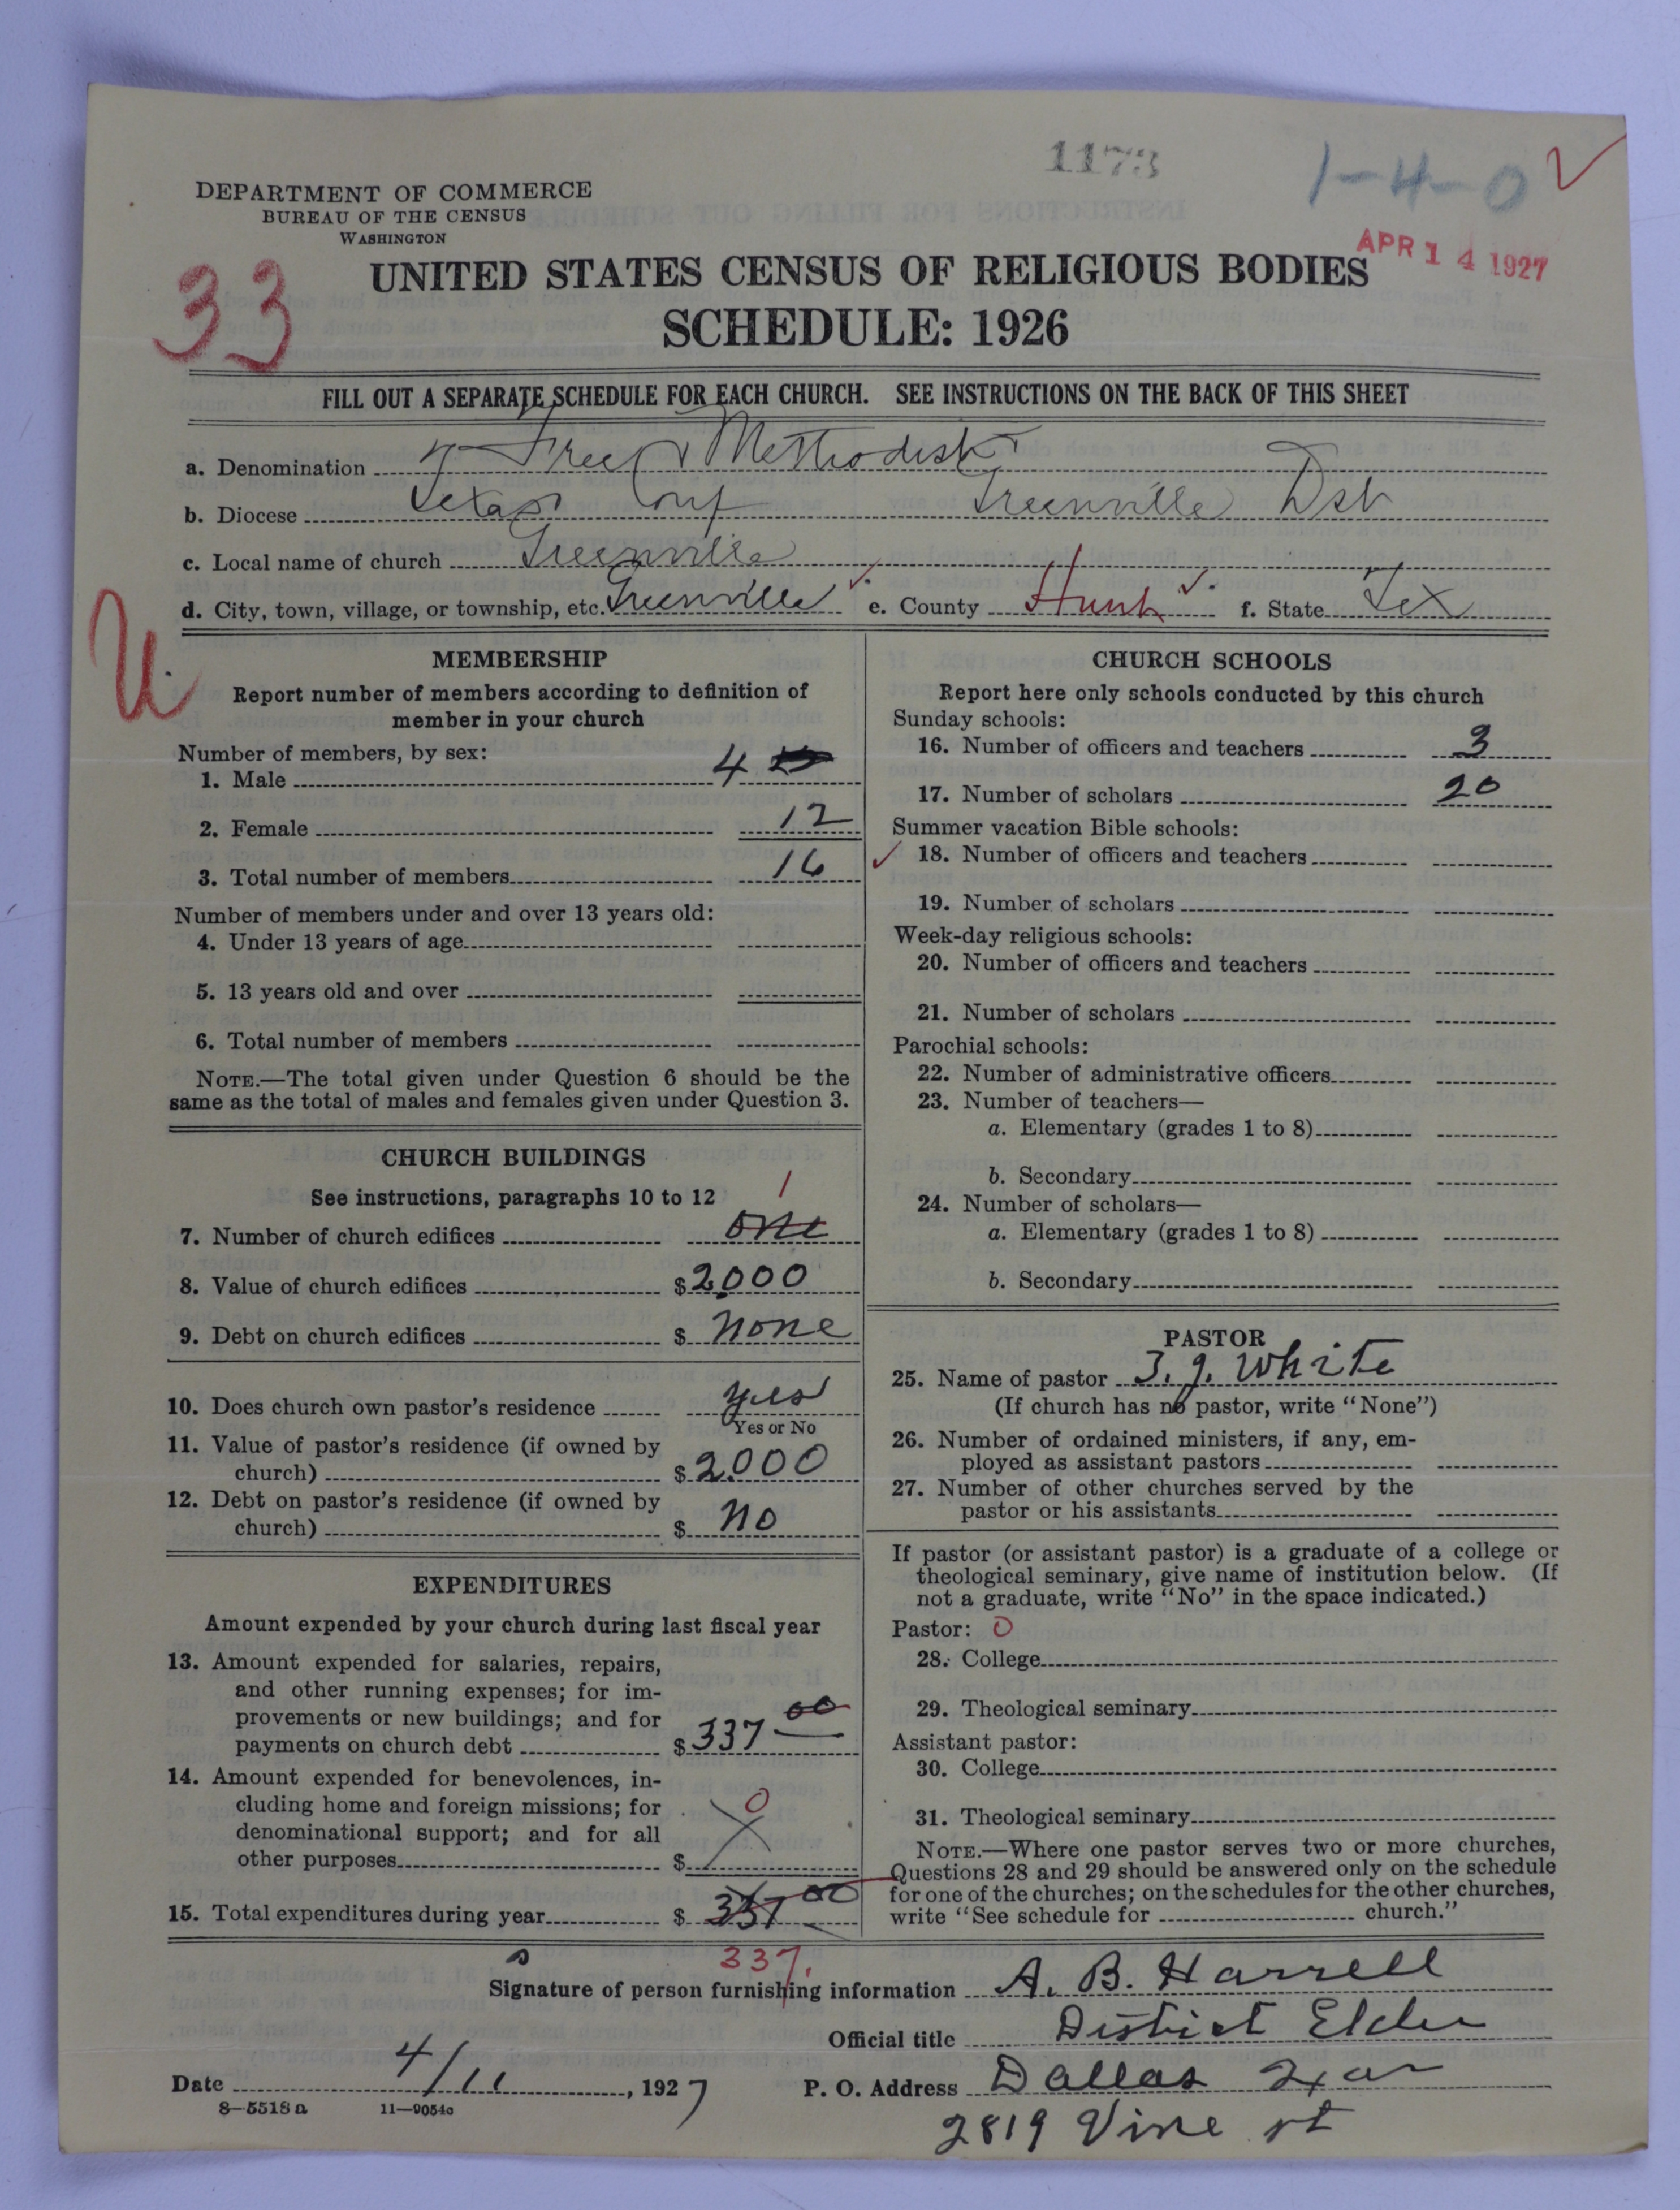 1173
1-4-0
DEPARTMENT OF COMMERCE
BUREAU OF THE CENSUS
WASHINGTON
APR 14 1927
33
UNITED STATES CENSUS OF RELIGIOUS BODIES
SCHEDULE: 1926
FILL OUT A SEPARATE SCHEDULE FOR EACH CHURCH. SEE INSTRUCTIONS ON THE BACK OF THIS SHEET
a. Denomination Free Methodist
b. Diocese Texas Conf Greenville Dst
c. Local name of church Greenville
d. City, town, village, or township, etc. Greenville e. County Hunt f. State Tex
U
MEMBERSHIP
Report number of members according to definition of
member in your church
Number of members, by sex:
1. Male 4
2. Female 12
3. Total number of members 16
Number of members under and over 13 years old:
4. Under 13 years of age
5. 13 years old and over
6. Total number of members
NOTE.—The total given under Question 6 should be the
same as the total of males and females given under Question 3.
CHURCH BUILDINGS
See instructions, paragraphs 10 to 12
1
7. Number of church edifices one
8. Value of church edifices $2000
9. Debt on church edifices $ none
10. Does church own pastor's residence yes
Yes or No
11. Value of pastor's residence (if owned by
church) $2000
12. Debt on pastor's residence (if owned by
church) $ no
EXPENDITURES
Amount expended by your church during last fiscal year
13. Amount expended for salaries, repairs,
and other running expenses; for im-
provements or new buildings; and for
payments on church debt $337 00
14. Amount expended for benevolences, in-
cluding home and foreign missions; for
denominational support; and for all
other purposes $ 0
15. Total expenditures during year $ 337 00
337.
CHURCH SCHOOLS
Report here only schools conducted by this church
Sunday schools:
16. Number of officers and teachers 3
17. Number of scholars 20
Summer vacation Bible schools:
18. Number of officers and teachers
19. Number of scholars
Week-day religious schools:
20. Number of officers and teachers
21. Number of scholars
Parochial schools:
22. Number of administrative officers
23. Number of teachers—
a. Elementary (grades 1 to 8)
b. Secondary
24. Number of scholars—
a. Elementary (grades 1 to 8)
b. Secondary
PASTOR
25. Name of pastor J. J. White
(If church has no pastor, write "None")
26. Number of ordained ministers, if any, em-
ployed as assistant pastors
27. Number of other churches served by the
pastor or his assistants
If pastor (or assistant pastor) is a graduate of a college or
theological seminary, give name of institution below. (If
not a graduate, write "No" in the space indicated.)
Pastor: 0
28. College
29. Theological seminary
Assistant pastor:
30. College
31. Theological seminary
NOTE.—Where one pastor serves two or more churches,
Questions 28 and 29 should be answered only on the schedule
for one of the churches; on the schedules for the other churches,
write "See schedule for church."
Signature of person furnishing information A. B. Harrell
Official title District Elder
Date 4/11, 1927 P. O. Address Dallas
8-5518a 11-9054c
2819 Vine st